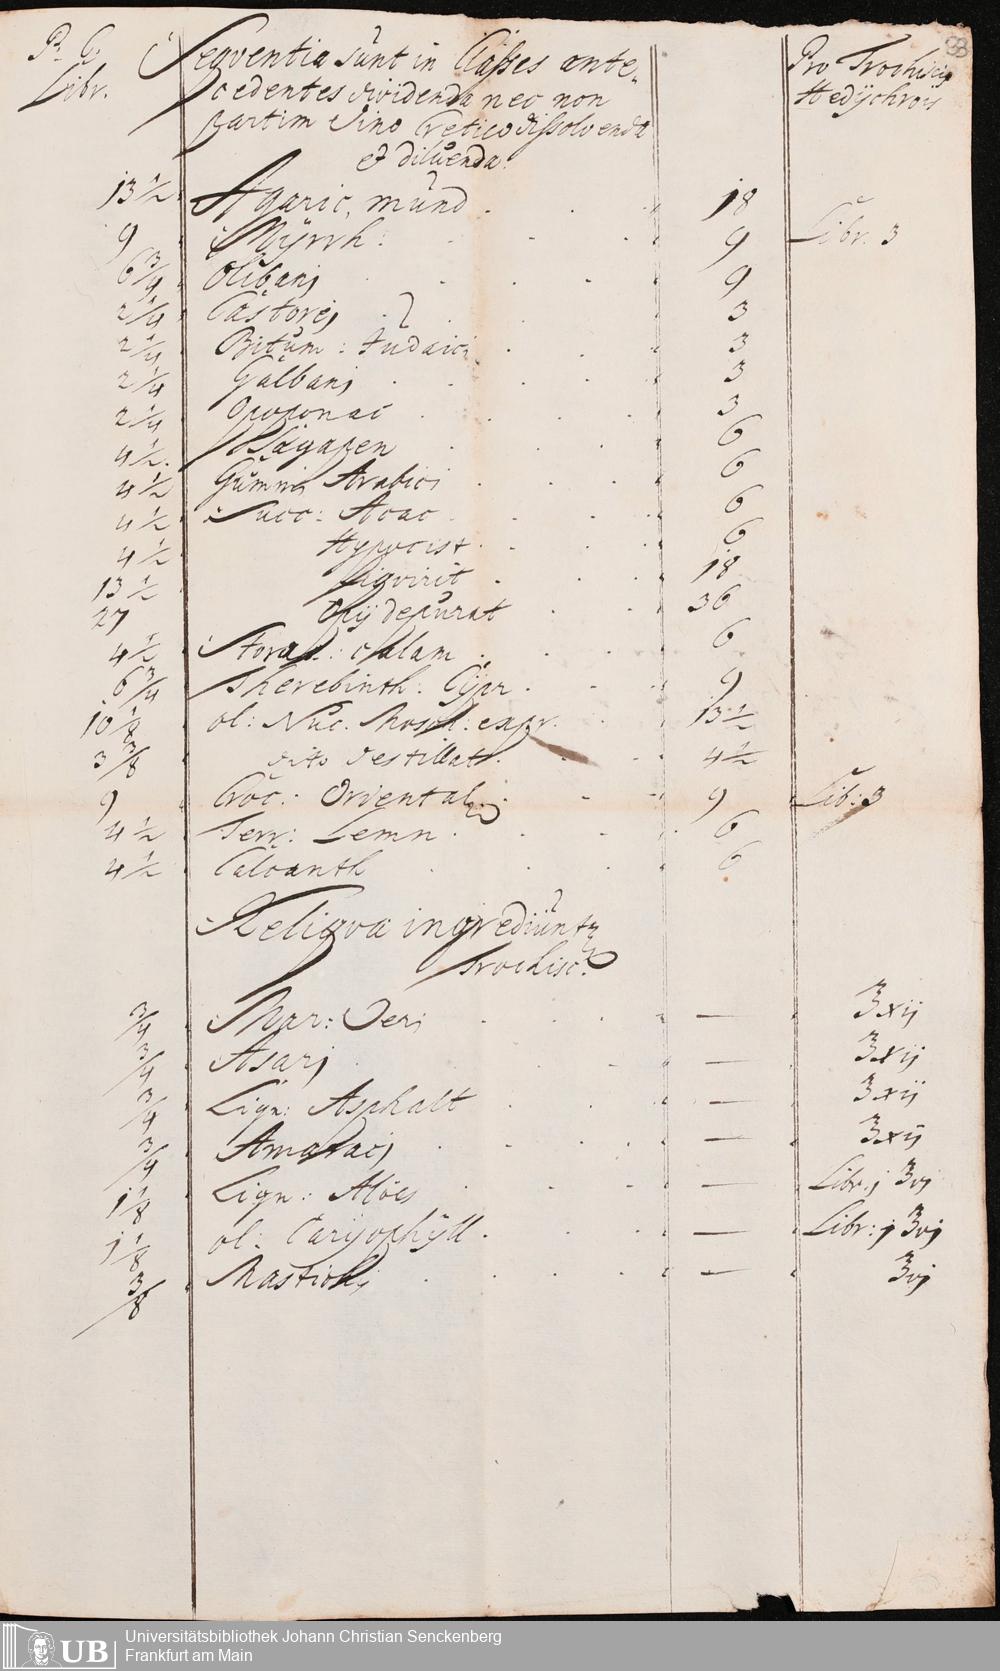 P. C.
Libr.
Seqventia sunt in Classes ante-
cedentes dividenda nec non
partim Vino Cretico dissolvenda
& diluenda.
Pro Trochisis
Hedÿchroÿ
88
13 1/2 Agaric, mund . . . 18
9 Mÿrrh: . . . 9 Libr. 3
6 3/4 Olibanj . . . 9
2 1/4 Castorej . . . 3
2 1/4 Bitum: Judaici . . . 3
2 1/4 Galbanj . . . 3
2 1/4 Opoponac . . . 3
4 1/2 Sagapen . . . 6
4 1/2 Gummi Arabici . . . 6
4 1/2 Succ: Acac . . . 6
4 1/2 Hypocist . . . 6
13 1/2 Liqvirit . . . 18
27 Opÿ depurat . . . 36
4 1/2 Storac: Calam . . . 6
6 3/4 Therebinth: Cÿpr . . . 9
10 1/8 ol: Nuc. Mosch: expr. . . . 13 1/2
3 3/8 dito destillat. . . . 4 1/2
9 Croc: Orvental . . . 9 Lib: 3
4 1/2 Terr: Lemn . . . 6
4 1/2 Calcanth . . . 6
Reliqva ingrediunt
Trochisc:
3/4 Mar: Veri . . . — ℥xij
3/4 Asarj . . . — ℥xij
3/4 Lign: Asphalt . . . — ℥xij
3/4 Amaracj . . . — ℥xij
1 1/8 Lign: Aloes . . . — Libr. j ℥vj
1 1/8 ol: Carÿophÿll . . . — Libr: j ℥vj
3/8 Mastichj . . . — ℥vj
UB Universitätsbibliothek Johann Christian Senckenberg
Frankfurt am Main